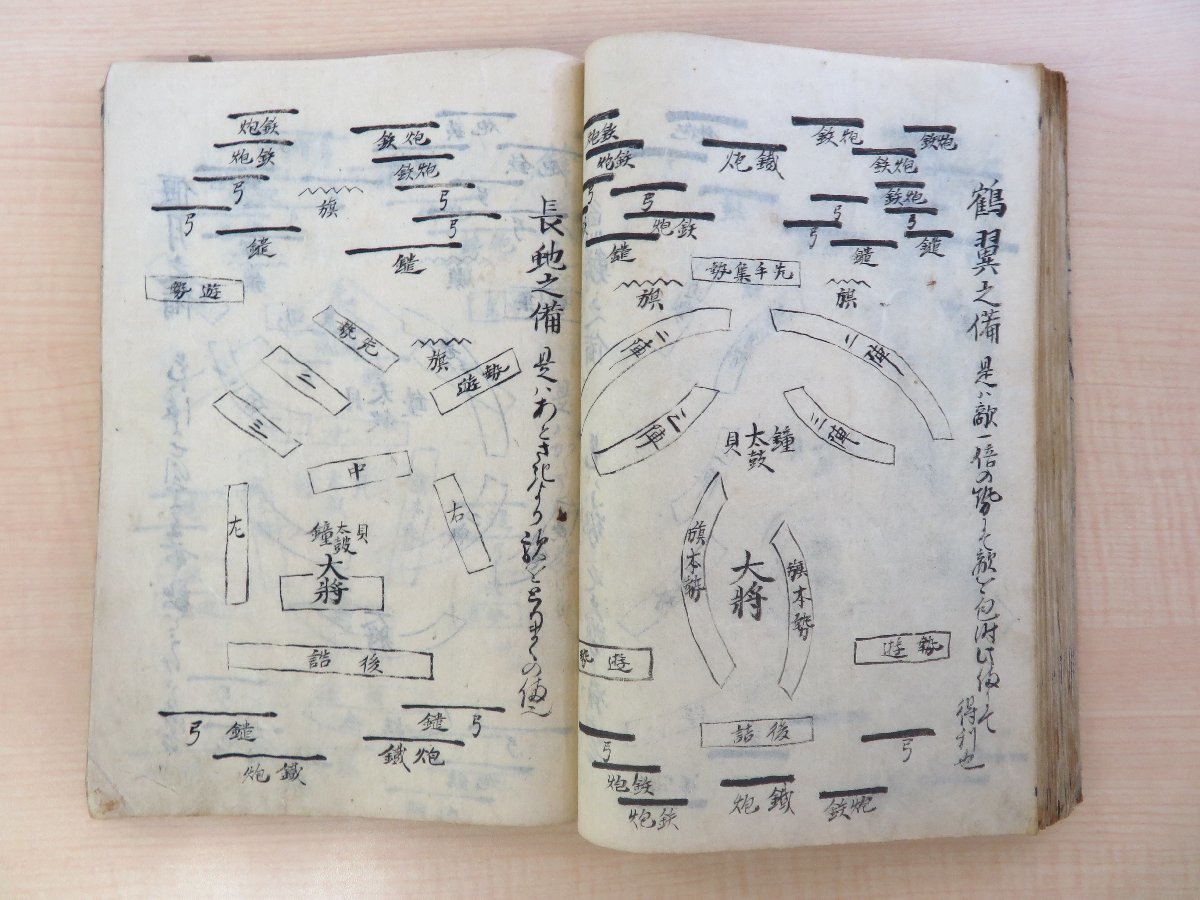 鶴翼之備 是ハ敵一倍の勢ニて敵を包討時此備ニて
得利也
鉄炮
鉄炮
鉄炮
鉄炮
鐵炮
鉄炮
鉄炮
弓
弓
弓
弓
弓
鉄炮
鑓
鑓
鑓
先手集勢
旗
旗
二陣
二陣
三陣
三陣
鐘
太鼓
貝
旗本勢
大將
旗本勢
遊勢
遊勢
後詰
弓
弓
鉄炮
鉄炮
鐵炮
鉄炮
長虵之備 是ハあとさきより敵をとりまくの備也
鉄炮
鉄炮
鉄炮
鉄炮
弓
弓
弓
弓
旗
鑓
鑓
遊勢
先勢
二
三
旗
遊勢
中
右
左
貝
太鼓
鐘
大將
後詰
弓
鑓
鑓
弓
鐵炮
鐵炮